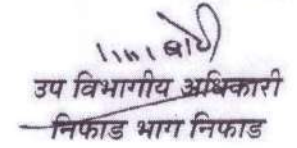 उप विभागीय अधिकारी
निफाड भाग निफाड